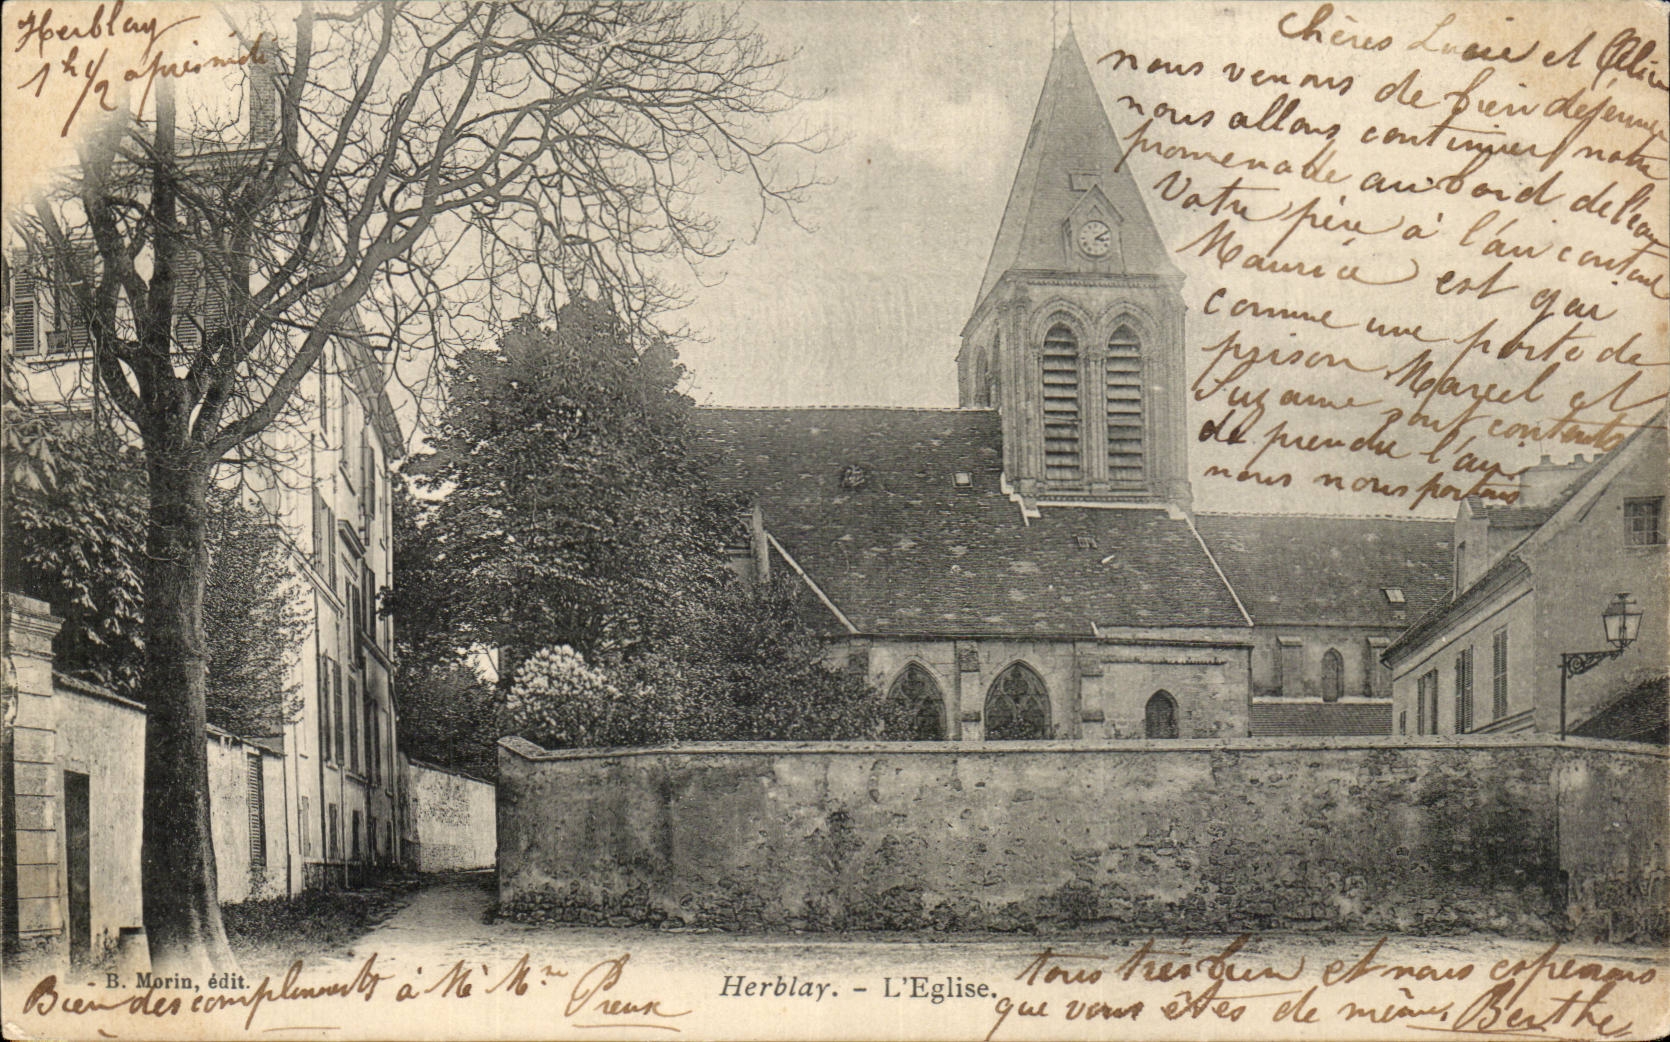 Herblay
1h 1/2 après midi
Chères Lucie et Alice
nous venons de bien déjeuner
nous allons continuer notre
promenade au bord de l'eau
Votre père à l'air content
Maurice est gai
comme une porte de
prison Marcel et
Suzanne sont contents
de prendre l'air
nous nous portons
tous très bien et nous espérons
que vous êtes de même. Berthe
B. Morin, édit.
Herblay. - L'Eglise.
Bien des compliments à Mr Mme Preux